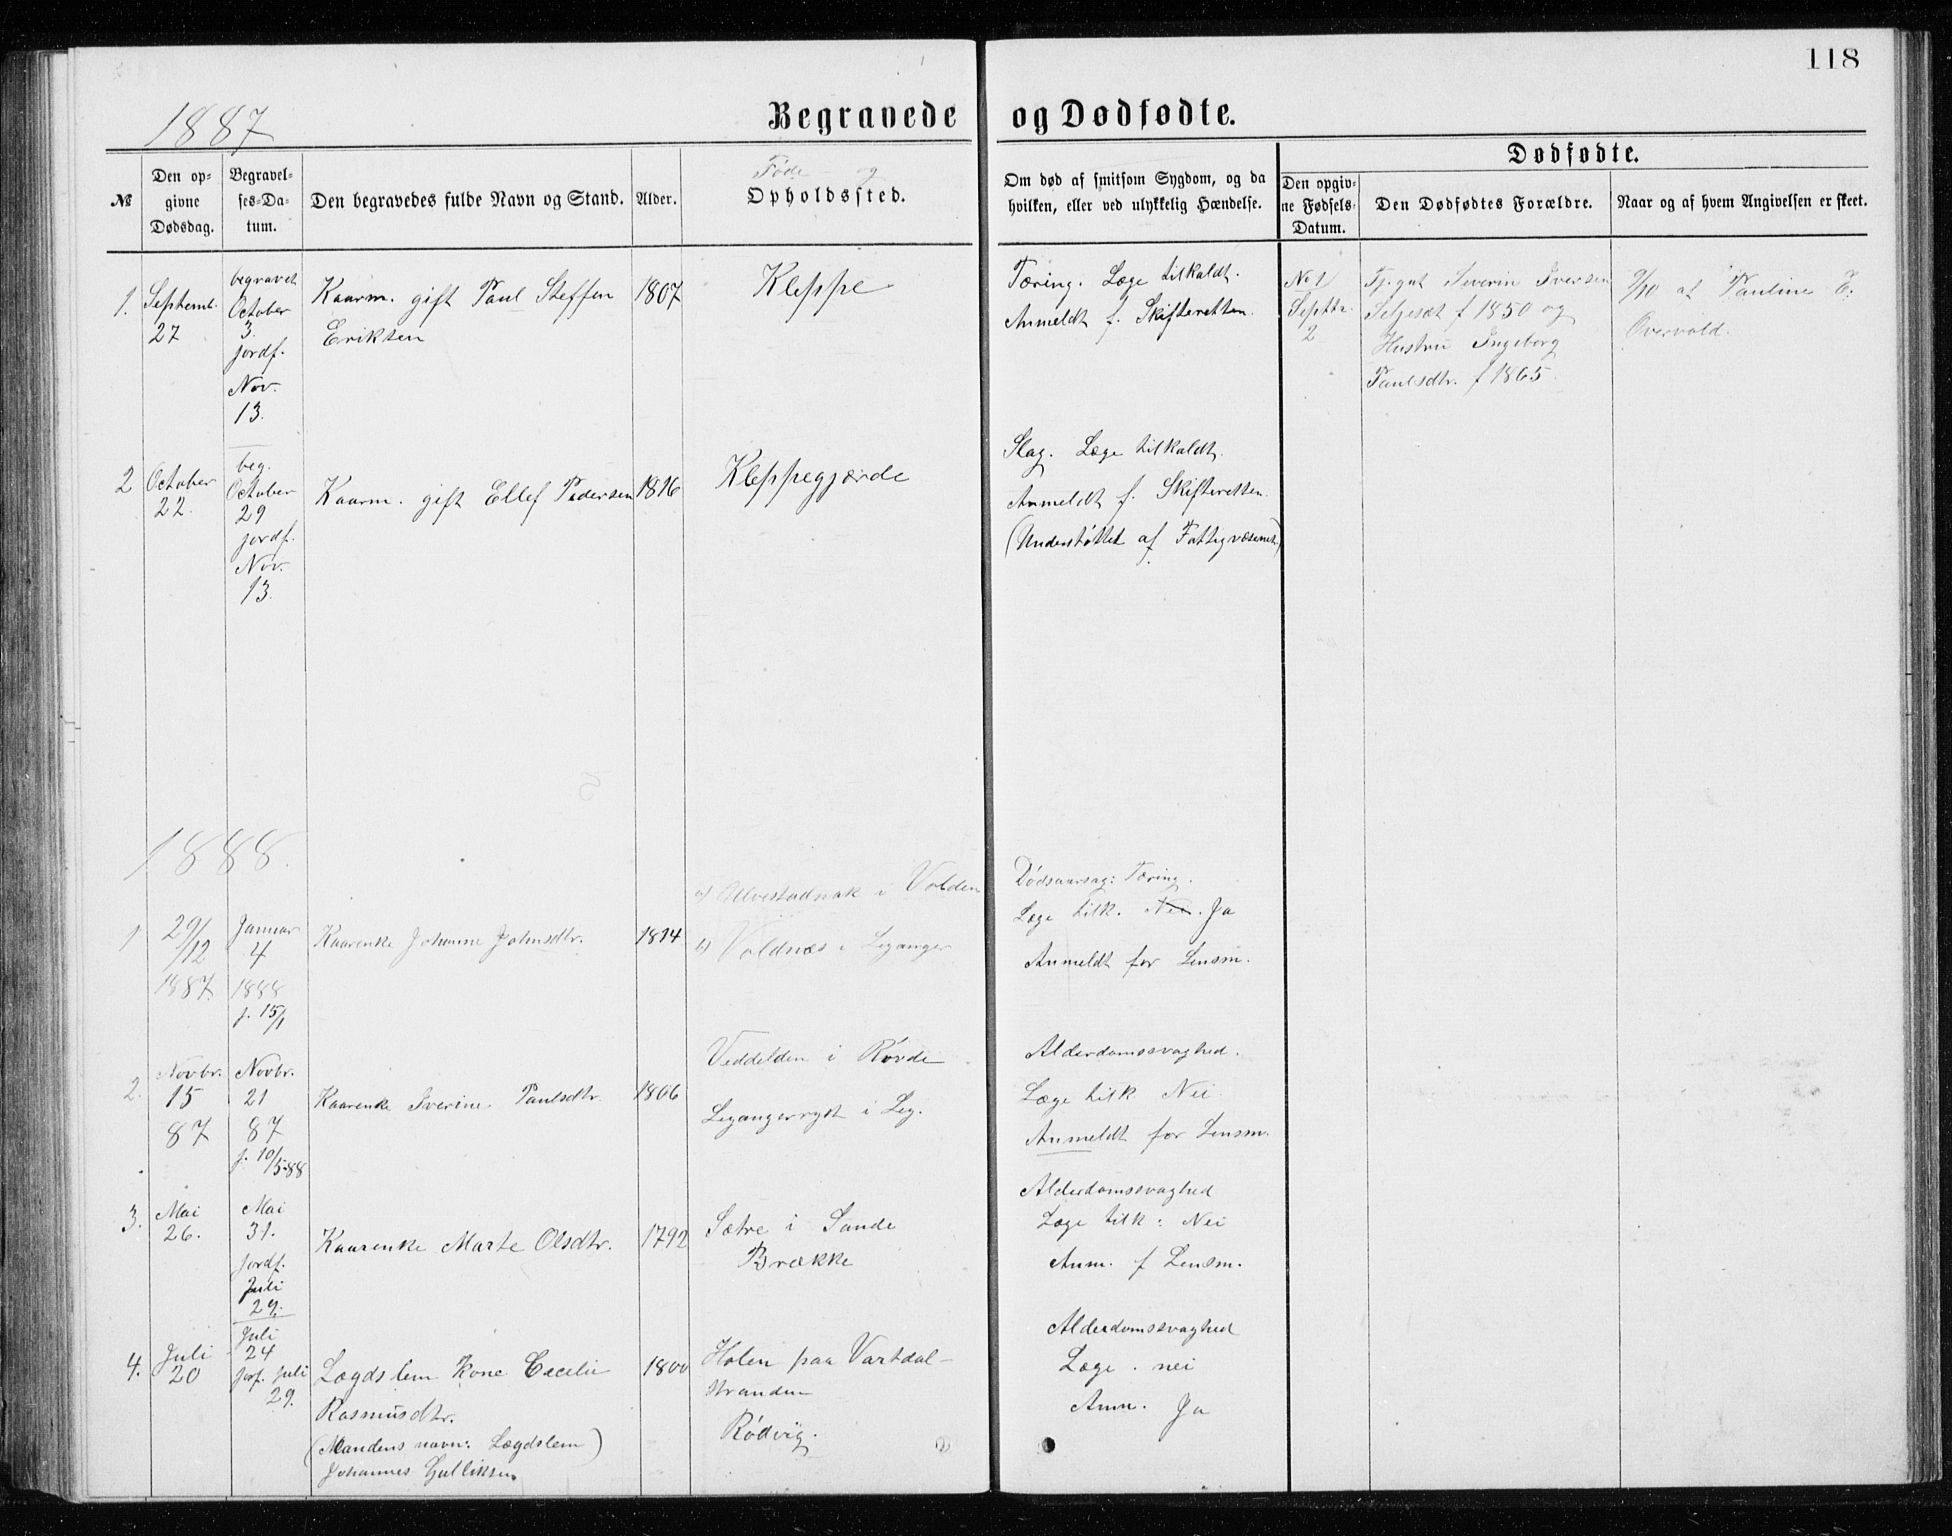 118
1887
Begravede og Dødfødte.
Dødfødte.
№
Den op-
givne
Dødsdag.
Begravel-
ses-Da-
tum.
Den begravedes fulde Navn og Stand.
Alder.
Føde og
Opholdssted.
Om død af smitsom Sygdom, og da
hvilken, eller ved ulykkelig Hændelse.
Den opgiv-
ne Fødsels-
Datum.
Den Dødfødtes Forældre.
Naar og af hvem Angivelsen er skeet.
1.
Septemb.
27
begravet
October
3.
jordf.
Nov.
13.
Kaarm. gift Paul Steffen
Eriksen
1807
Kleppe
Tæring. Læge tilkaldt.
Anmeldt f. Skifteretten.
No 1
Septbr.
2
Severin Iversen
Seljesæt f 1850 og
Hustru Ingeborg
Paulsdtr. f 1865.
9/10 af Pauline E.
Overvold.
2
October
22.
beg.
October
29
jordf.
Nov.
13.
Kaarm. gift Ellef Pedersen
1816
Kleppegjerde
Slag. Læge tilkaldt.
Anmeldt f. Skifteretten.
(Understøttet af Fattigvæsenet)
1888.
1
29/12
1887.
Januar
4
1888
j. 15/1
Kaarenke Johanne Johnsdtr.
1814
a) Alvestadnak i Volden
b) Voldnæs i Leganger
Dødsaarsag: Tæring.
Læge tilk. Nei. Ja
Anmeldt for Lensm.
2.
Novbr.
15
87
Novbr.
21
87
j. 10/5-88
Kaarenke Iverine Paulsdtr.
1806
Veddelden i Røvde
Legangerryst i Leg.
Alderdomssvaghed.
Læge tilk Nei.
Anmeldt for Lensm.
3.
Mai
26.
Mai
31.
Jordf.
Juli
29.
Kaarenke Marte Olsdtr.
1792
Sætre i Sande
Brække
Alderdomssvaghed
Læge tilk: Nei
Anm. f Lensm.
4.
Juli
20
Juli
24
jorf. Juli
29.
Lægdslem Kone Cecilie
Rasmusdtr.
(Mandens navn: Lægdslem)
Johannes Gulliksen
1800
Holen paa Vartdal-
stranden
Rødvig.
Alderdomssvaghed
Læge. nei
Anm. Ja